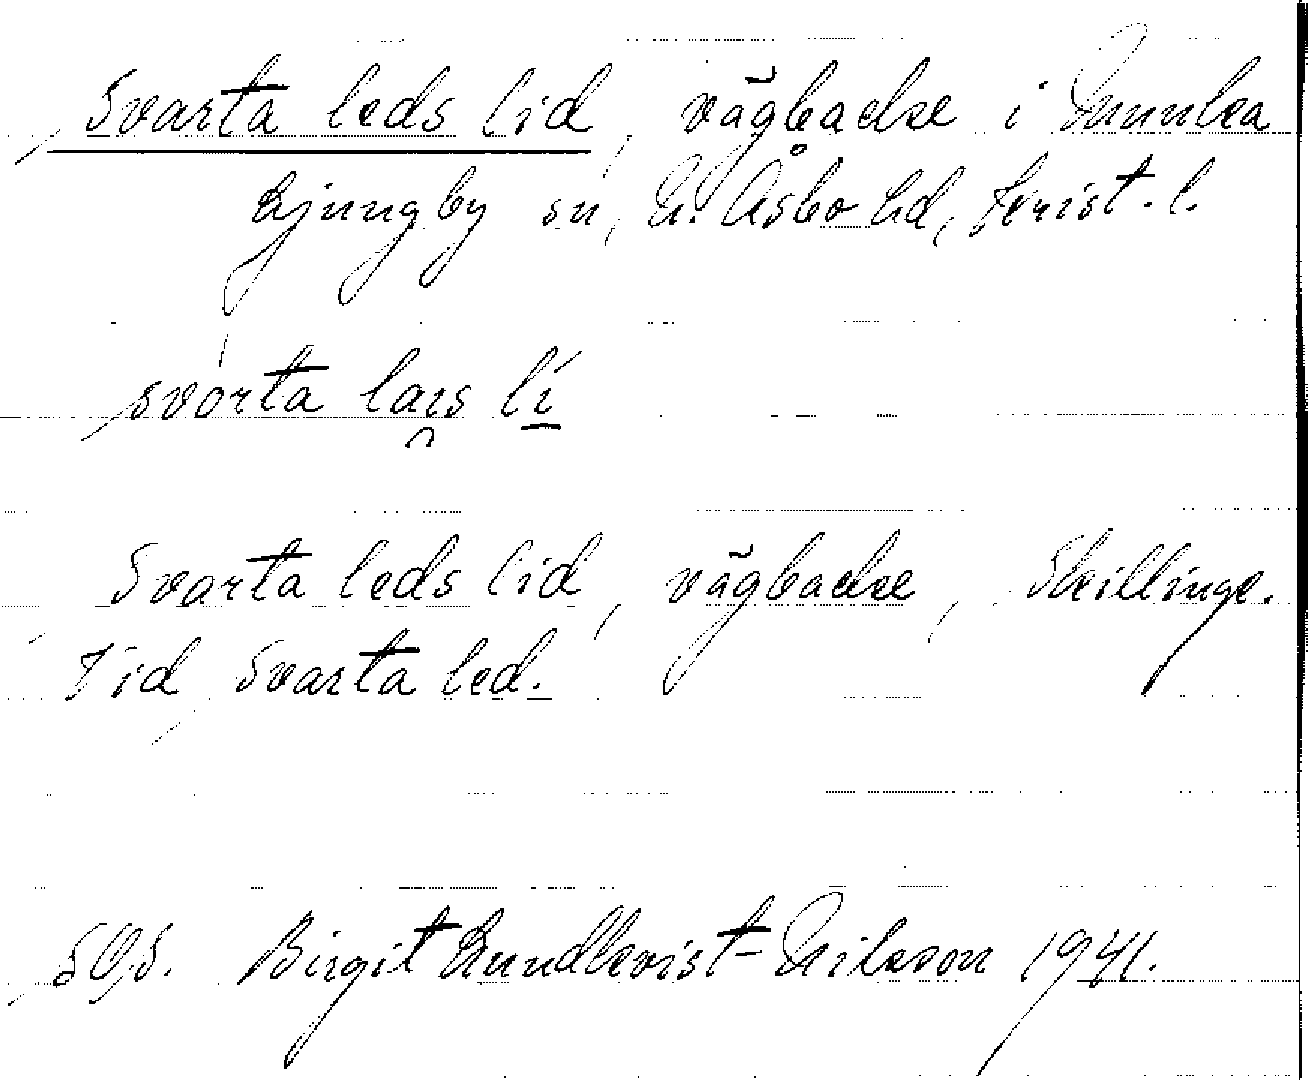 Svarta leds lid, vägbacke i Munka
Ljungby sn, N. Åsbo hd, Krist. l.
svórta lais lí
Svarta leds lid, vägbacke, Skillinge.
Vid Svarta led.
SOD. Birgit Lundkvist-Nilsson 1941.